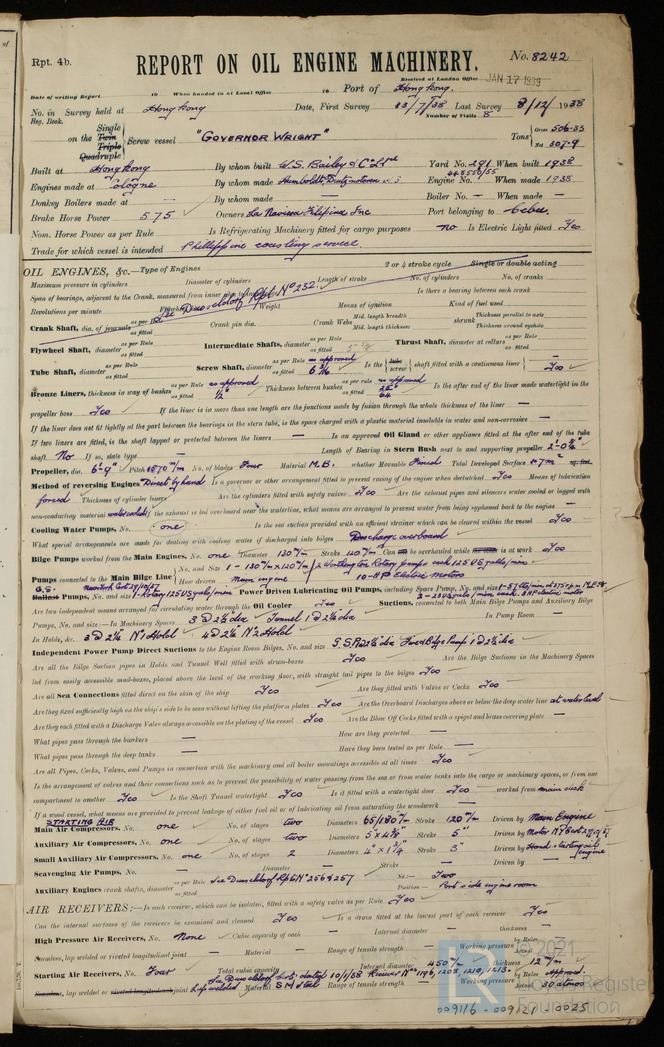 Rpt. 4b.
REPORT ON OIL ENGINE MACHINERY.
No. 8242
Received at London Office JAN 17 1939
Date of writing Report 19 When handed in at Local Office 19 Port of Hong Kong.
No. in Survey held at Hong Kong Date, First Survey 13/7/38 Last Survey 8/12/1938
Reg. Book. Number of Visits 8
on the Single Twin Triple Quadruple Screw vessel "GOVERNOR WRIGHT" Tons Gross 506.33 Net 307.9
Built at Hong Kong By whom built W.S. Bailey & Co Ltd Yard No. 291 When built 1938
Engines made at Cologne By whom made Humboldt-Deutzmotoren Engine No. When made 1938
Donkey Boilers made at — By whom made — Boiler No. — When made —
Brake Horse Power 575 Owners La Naviera Filipina Inc Port belonging to Cebu.
Nom. Horse Power as per Rule Is Refrigerating Machinery fitted for cargo purposes No Is Electric Light fitted Yes
Trade for which vessel is intended Philippine coasting service
OIL ENGINES, &c.—Type of Engines 2 or 4 stroke cycle Single or double acting
Maximum pressure in cylinders Diameter of cylinders Length of stroke No. of cylinders No. of cranks
Span of bearings, adjacent to the Crank, measured from inner Rpt. No 252. Is there a bearing between each crank
Revolutions per minute Flywheel Dusseldorf Weight Means of ignition Kind of fuel used
Crank Shaft, dia. of journals as per Rule as fitted Crank pin dia. Crank Webs Mid. length breadth Mid. length thickness shrunk Thickness parallel to axis Thickness around eyehole
Flywheel Shaft, diameter as per Rule as fitted Intermediate Shafts, diameter as per Rule as fitted Thrust Shaft, diameter at collars as per Rule as fitted
Tube Shaft, diameter as per Rule as fitted Screw Shaft, diameter as per Rule as approved as fitted Is the tube screw shaft fitted with a continuous liner Yes
Bronze Liners, thickness in way of bushes as per Rule as approved as fitted 1/2" Thickness between bushes as per Rule as approved as fitted Is the after end of the liner made watertight in the
propeller boss Yes If the liner is in more than one length are the junctions made by fusion through the whole thickness of the liner —
If the liner does not fit tightly at the part between the bearings in the stern tube, is the space charged with a plastic material insoluble in water and non-corrosive —
If two liners are fitted, is the shaft lapped or protected between the liners — Is an approved Oil Gland or other appliance fitted at the after end of the tube
shaft No If so, state type — Length of Bearing in Stern Bush next to and supporting propeller
Propeller, dia. 6'-9" Pitch 1870 m/m No. of blades Four Material M.B. whether Moveable Fixed Total Developed Surface
Method of reversing Engines Direct by hand Is a governor or other arrangement fitted to prevent racing of the engine when declutched Yes Means of lubrication
forced Thickness of cylinder liners Are the cylinders fitted with safety valves Yes Are the exhaust pipes and silencers water cooled or lagged with
non-conducting material water cooled If the exhaust is led overboard near the waterline, what means are arranged to prevent water from being syphoned back to the engine —
Cooling Water Pumps, No. one Is the sea suction provided with an efficient strainer which can be cleared within the vessel Yes
What special arrangements are made for dealing with cooling water if discharged into bilges Discharge overboard
Bilge Pumps worked from the Main Engines, No. one Diameter 130 m/m Stroke 120 m/m Can be overhauled while is at work Yes
Pumps connected to the Main Bilge Line No. and Size 1 - 130 m/m x 120 m/m 2 Worthington Rotary pumps each 125 US galls/min.
How driven Main engine 10-HP Electric Motors
Ballast Pumps, No. and size 1-Rotary 125 US galls/min Power Driven Lubricating Oil Pumps, including Spare Pump, No. and size
Are two independent means arranged for circulating water through the Oil Cooler Yes Suctions, connected to both Main Bilge Pumps and Auxiliary Bilge
Pumps, No. and size:—In Machinery Spaces 3 @ 2½" dia Tunnel 1 @ 2½" dia In Pump Room —
In Holds, &c. 3 @ 2½ No 1 Hold 4 @ 2½ No 2 Hold
Independent Power Pump Direct Suctions to the Engine Room Bilges, No. and size
Are all the Bilge Suction pipes in Holds and Tunnel Well fitted with strum-boxes Yes Are the Bilge Suctions in the Machinery Spaces
led from easily accessible mud-boxes, placed above the level of the working door, with straight tail pipes to the bilges Yes
Are all Sea Connections fitted direct on the skin of the ship Yes Are they fitted with Valves or Cocks Yes
Are they fixed sufficiently high on the ship's side to be seen without lifting the platform plates Yes Are the Overboard Discharges above or below the deep water line at water level
Are they each fitted with a Discharge Valve always accessible on the plating of the vessel Yes Are the Blow Off Cocks fitted with a spigot and brass covering plate —
What pipes pass through the bunkers — How are they protected —
What pipes pass through the deep tanks — Have they been tested as per Rule —
Are all Pipes, Cocks, Valves, and Pumps in connection with the machinery and all boiler mountings accessible at all times Yes
Is the arrangement of valves and their connections such as to prevent the possibility of water passing from the sea or from water tanks into the cargo or machinery spaces, or from one
compartment to another Yes Is the Shaft Tunnel watertight Yes Is it fitted with a watertight door Yes worked from main deck
If a wood vessel, what means are provided to prevent leakage of either fuel oil or of lubricating oil from saturating the woodwork —
STARTING AIR
Main Air Compressors, No. one No. of stages two Diameters 65/180 m/m Stroke 120 m/m Driven by Main Engine
Auxiliary Air Compressors, No. one No. of stages two Diameters Stroke 5" Driven by Motor
Small Auxiliary Air Compressors, No. one No. of stages 2 Diameters 4" x 1¼" Stroke 3" Driven by Hand starting oil engine
Scavenging Air Pumps, No. — Diameter — Stroke — Driven by —
Auxiliary Engines crank shafts, diameter as per Rule as fitted See Dusseldorf Rpts No 256 & 257 No. Two
Position Port side engine room
AIR RECEIVERS:—Is each receiver, which can be isolated, fitted with a safety valve as per Rule Yes
Can the internal surfaces of the receivers be examined and cleaned Yes Is a drain fitted at the lowest part of each receiver Yes
High Pressure Air Receivers, No. None Cubic capacity of each — Internal diameter — thickness —
Seamless, lap welded or riveted longitudinal joint — Material — Range of tensile strength — Working pressure by Rules Actual
Starting Air Receivers, No. Four Total cubic capacity Internal diameter 450 m/m thickness 12 m/m
See Dusseldorf Cert. dated 10/1/38 Receiver Nos 1196, 1208, 1210, 1213.
Seamless, lap welded or riveted longitudinal joint Lap welded Material S M Steel Range of tensile strength — Working pressure by Rules Approved Actual 30 atmos
© 2021
Lloyd's Register
Foundation
009116 - 009121 - 0025